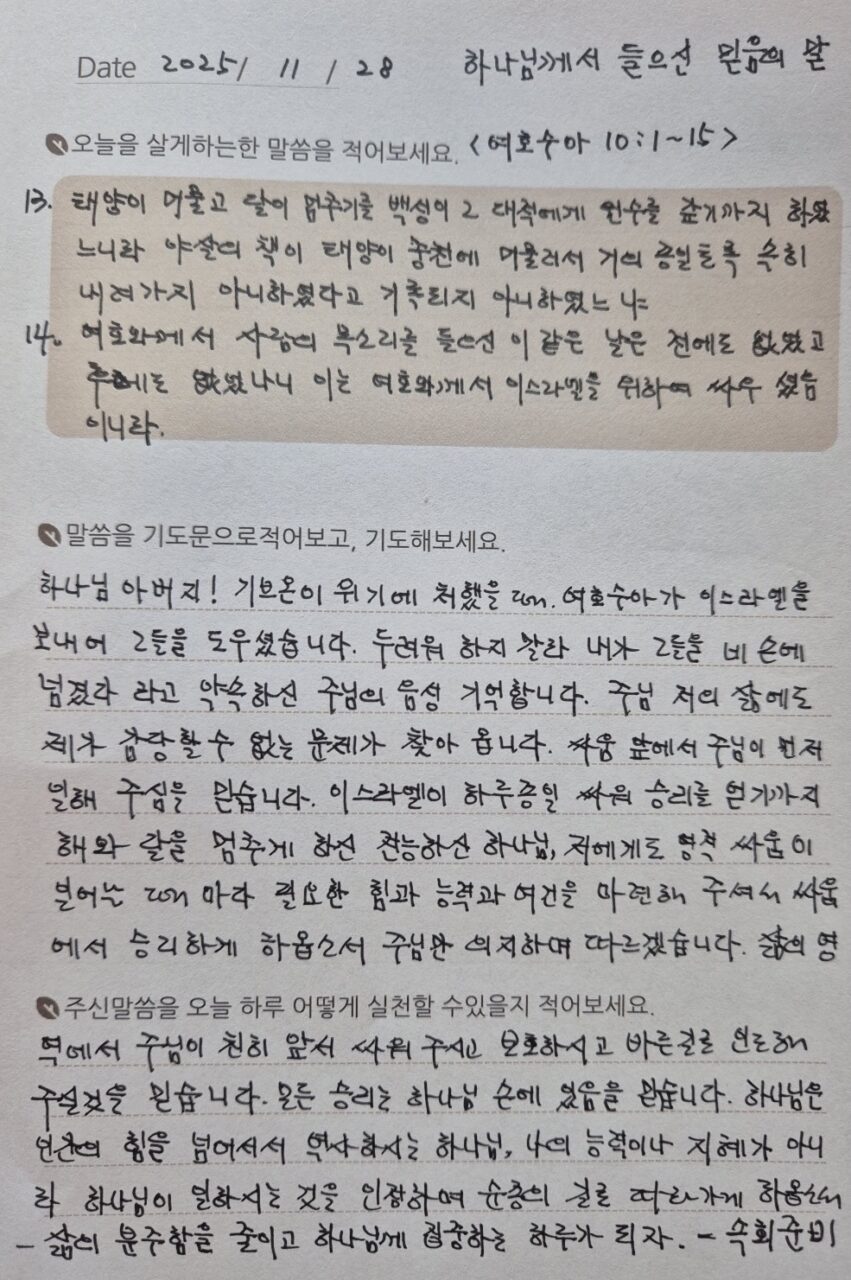 Date 2025/ 11 / 28 하나님께서 들으신 믿음의 말
오늘을 살게하는한 말씀을 적어보세요. <여호수아 10:1~15>
13. 태양이 머물고 달이 멈추기를 백성이 그 대적에게 원수를 갚기까지 하였
느니라 야살의 책이 태양이 중천에 머물러서 거의 종일토록 속히
내려가지 아니하였다고 기록되지 아니하였느냐
14. 여호와께서 사람의 목소리를 들으신 이 같은 날은 전에도 없었고
후에도 없었나니 이는 여호와께서 이스라엘을 위하여 싸우셨음
이니라.
말씀을 기도문으로적어보고, 기도해보세요.
하나님 아버지! 기브온이 위기에 처했을 때. 여호수아가 이스라엘을
보내어 그들을 도우셨습니다. 두려워 하지 말라 내가 그들을 네 손에
넘겼다 라고 약속하신 주님의 음성 기억합니다. 주님 저의 삶에도
제가 감당할 수 없는 문제가 찾아 옵니다. 싸움 앞에서 주님이 먼저
일해 주심을 믿습니다. 이스라엘이 하루종일 싸워 승리를 얻기까지
해와 달을 멈추게 하신 전능하신 하나님, 저에게도 영적 싸움이
벌어는 때 마다 필요한 힘과 능력과 여건을 마련해 주셔서 싸움
에서 승리하게 하옵소서 주님만 의지하며 따르겠습니다. 삶의 영
주신말씀을 오늘 하루 어떻게 실천할 수있을지 적어보세요.
역에서 주님이 친히 앞서 싸워 주시고 보호하시고 바른길로 인도해
주실것을 믿습니다. 모든 승리는 하나님 손에 있음을 믿습니다. 하나님은
인간의 힘을 넘어서서 역사하시는 하나님, 나의 능력이나 지혜가 아니
라 하나님이 일하시는 것을 인정하며 순종의 길로 따라가게 하옵소서
- 삶의 분주함을 줄이고 하나님께 집중하는 하루가 되자. - 속회준비